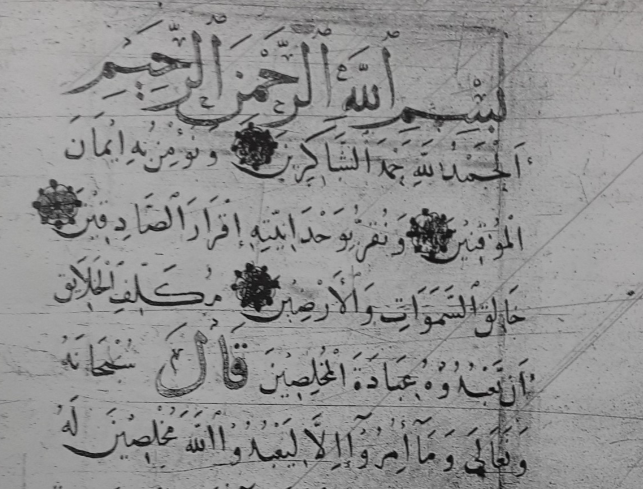 بِسْمِ اللَّهِ الرَّحْمَنِ الرَّحِيمِ
اَلْحَمْدُ لِلَّهِ حَمْدَ الشَّاكِرِينَ وَنُؤْمِنُ بِهِ إِيْمَانَ
الْمُوقِنِيْنَ وَنُقِرُّ بِوَحْدَانِيَّتِهِ إِقْرَارَ الصَّادِقِيْنَ
خَالِقِ السَّمَوَاتِ وَالْأَرْضِيْنَ مُكَلِّفِ الْخَلَايِقِ
أَنْ تَعْبُدُوْهُ عِبَادَةَ الْمُخْلِصِيْنَ قَالَ سُبْحَانَهُ
وَتَعَالَى وَمَآ أُمِرُوْآ إِلَّا لِيَعْبُدُوْا اللَّهَ مُخْلِصِيْنَ لَهُ